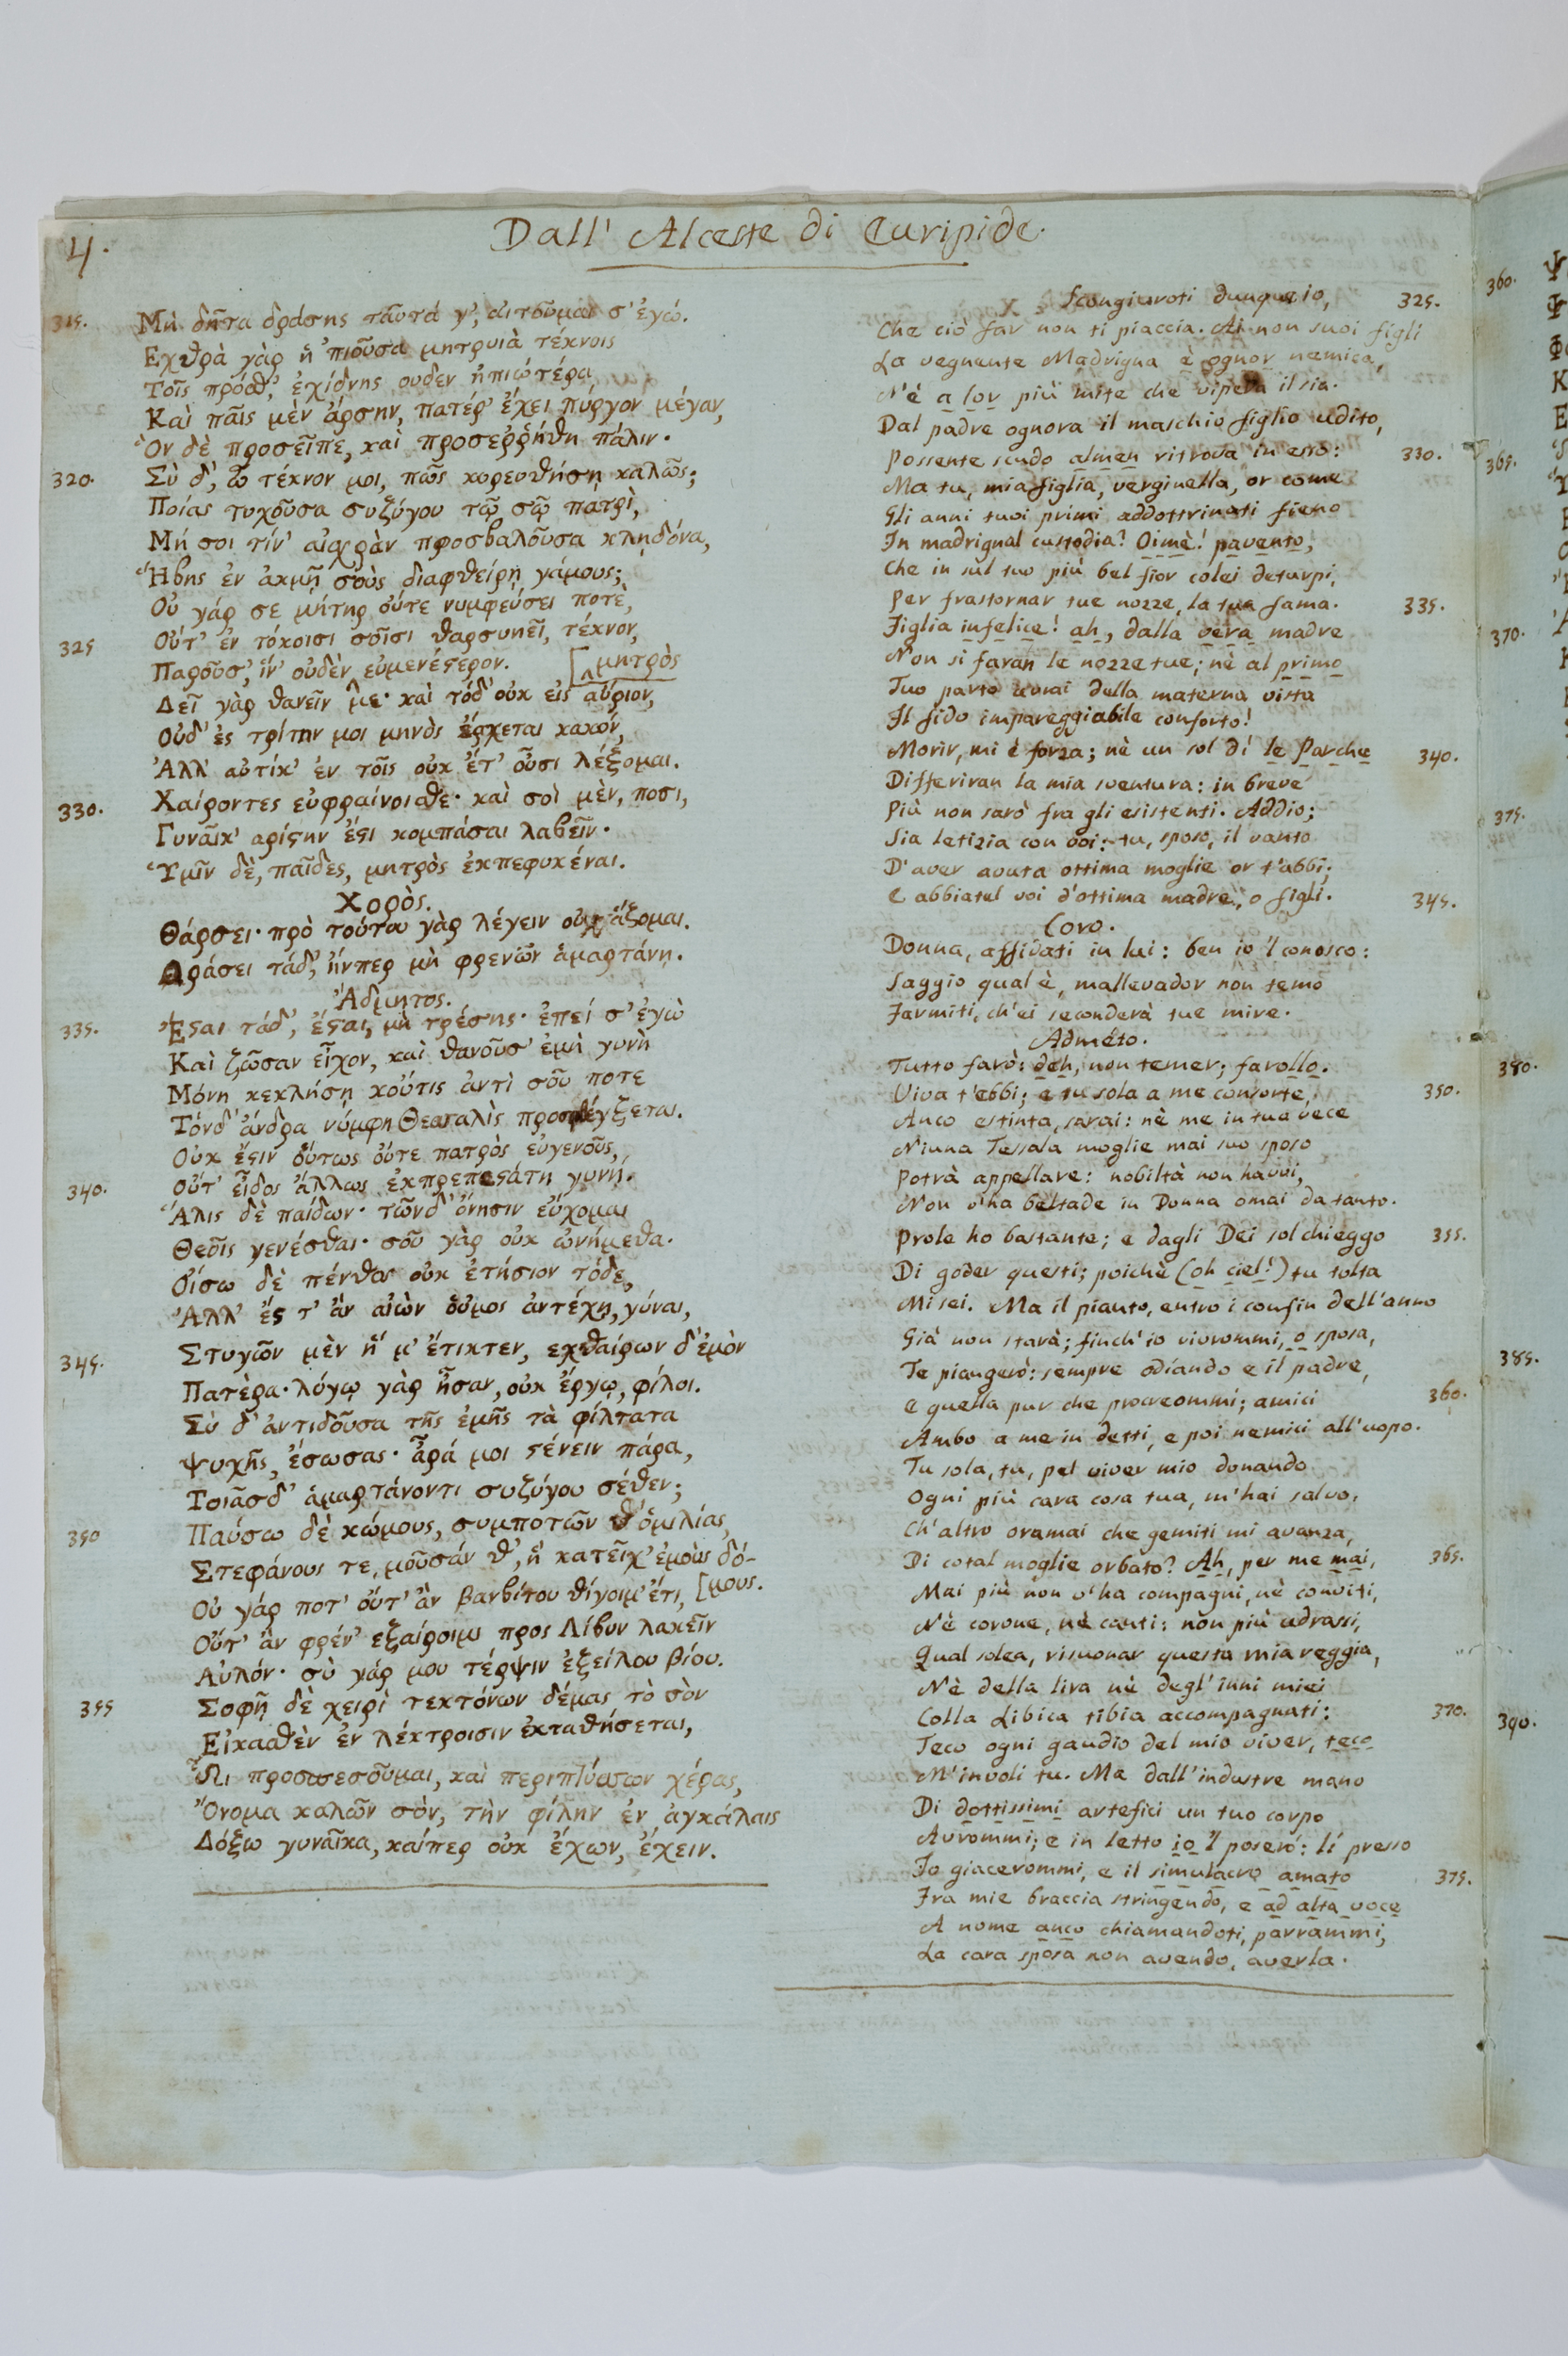 4.
Dall' Alceste di Euripide.
315. Μὴ δῆτα δράσης ταῦτά γ', αἰτοῦμαι σ' ἐγώ.
Εχθρὰ γὰρ ἡ 'πιοῦσα μητρυιὰ τέκνοις
Τοῖς πρόσθ', ἐχίδνης ουδεν ἠπιωτέρα,
Καὶ παῖς μὲν ἄρσην, πατέρ' ἔχει πύργον μέγαν,
Ὃν δὲ προσεῖπε, καὶ προσεῤῥήθη πάλιν.
320. Σὺ δ', ὦ τέκνον μοι, πῶς κορευθήσῃ καλῶς;
Ποίας τυχοῦσα συζύγου τῷ σῷ πατρὶ,
Μή σοι τίν' αἰσχρὰν προσβαλοῦσα κληδόνα,
Ἥβης ἐν ἀκμῇ σοὺς διαφθείρῃ γάμους;
Οὐ γάρ σε μήτηρ οὔτε νυμφεύσει ποτὲ,
325 Οὔτ' ἐν τόκοισι σοῖσι θαρσυνεῖ, τέκνον,
Παροῦσ', ἵν' οὐδὲν εὐμενέστερον. [μητρὸς
Δεῖ γὰρ θανεῖν με· καὶ τόδ' οὐκ εἰς αὔριον,
Οὐδ' ἐς τρίτην μοι μηνὸς ἔρχεται κακόν,
Ἀλλ' αὐτίκ' ἐν τοῖς οὐκ ἔτ' οὖσι λέξομαι.
330. Χαίροντες εὐφραίνοισθε· καὶ σοὶ μὲν, ποσι,
Γυναῖκ' αρίστην ἔστι κομπάσαι λαβεῖν.
Ὑμῖν δὲ, παῖδες, μητρὸς ἐκπεφυκέναι.
Χορὸς.
Θάρσει· πρὸ τούτου γὰρ λέγειν οὐχ ἅζομαι.
Δράσει τάδ', ἤνπερ μὴ φρενῶν ἁμαρτάνῃ.
Ἄδμητος.
335. Ἔσται τάδ', ἔσται, μὴ τρέσης· ἐπεί σ' ἐγὼ
Καὶ ζῶσαν εἶχον, καὶ θανοῦσ' ἐμὴ γυνὴ
Μόνη κεκλήσῃ κοὔτις ἀντὶ σοῦ ποτε
Τόνδ' ἄνδρα νύμφη Θεσσαλὶς προσφθέγξεται.
Οὐκ ἔστιν οὕτως οὔτε πατρὸς εὐγενοῦς,
340. Οὔτ' εἶδος ἄλλως ἐκπρεπεστάτη γυνή.
Ἅλις δὲ παίδων· τῶνδ' ὄνησιν εὔχομαι
Θεοῖς γενέσθαι· σοῦ γὰρ οὐκ ὠνήμεθα.
Οἴσω δὲ πένθος οὐκ ἐτήσιον τόδε,
Ἀλλ' ἔς τ' ἂν αἰὼν οὑμος ἀντέχῃ, γύναι,
345. Στυγῶν μὲν ἥ μ' ἔτικτεν, εχθαίρων δ' ἐμὸν
Πατέρα· λόγῳ γὰρ ἦσαν, οὐκ ἔργῳ, φίλοι.
Σὺ δ' ἀντιδοῦσα τῆς ἐμῆς τὰ φίλτατα
Ψυχῆς, ἔσωσας· ἆρά μοι στένειν πάρα,
Τοιᾶσδ' ἁμαρτάνοντι συζύγου σέθεν;
350 Παύσω δὲ κώμους, συμποτῶν θ' ὁμιλίας,
Στεφάνους τε, μοῦσάν θ', ἣ κατεῖχ' ἐμοὺς δό-
Οὐ γάρ ποτ' οὔτ' ἂν βαρβίτου θίγοιμ' ἔτι, [μους.
Οὔτ' ἂν φρέν' εξαίροιμι προς Λίβυν λακεῖν
Αὐλόν· σὺ γάρ μου τέρψιν ἐξείλου βίου.
355 Σοφῇ δὲ χειρὶ τεκτόνων δέμας τὸ σὸν
Εἰκασθὲν ἐν λέκτροισιν ἐκταθήσεται,
Ὧι προσπεσοῦμαι, καὶ περιπτύσσων χέρας,
Ὄνομα καλῶν σὸν, τὴν φίλην ἐν ἀγκάλαις
Δόξω γυναῖκα, καίπερ οὐκ ἔχων, ἔχειν.
Scongiuroti dunque io, 325.
Che ciò far non ti piaccia. Ai non suoi figli
La vegnente Madrigna è ognor nemica,
N'è a lor più mite che vipera il sia.
Dal padre ognora il maschio figlio udito,
Possente scudo almen ritrova in esso: 330.
Ma tu, mia figlia, verginella, or come
Gli anni tuoi primi addottrinati fieno
In madrignal custodia? Oimè! pavento,
Che in sul tuo più bel fior colei deturpi,
Per frastornar tue nozze, la tua fama. 335.
Figlia infelice! ah, dalla vera madre
Non si faran le nozze tue; nè al primo
Tuo parto avrai della materna vista
Il fido impareggiabile conforto!
Morir, mi è forza; nè un sol dì le Parche 340.
Differiran la mia sventura: in breve
Più non sarò fra gli esistenti. Addio;
Sia letizia con voi: tu, sposo, il vanto
D'aver avuta ottima moglie or t'abbi;
E abbiatel voi d'ottima madre, o figli. 345.
Coro.
Donna, affidati in lui: ben io 'l conosco:
Saggio qual è, mallevador non temo
Farmiti, ch'ei seconderà tue mire.
Adméto.
Tutto farò: deh, non temer; farollo.
Viva t'ebbi; e tu sola a me consorte, 350.
Anco estinta, sarai: nè me in tua vece
Niuna Tessala moglie mai suo sposo
Potrà appellare: nobiltà non havvi,
Non v'ha beltade in Donna omai da tanto.
Prole ho bastante; e dagli Dei sol chieggo 355.
Di goder questi; poichè (oh ciel!) tu tolta
Mi sei. Ma il pianto, entro i confin dell'anno
Già non starà; finch'io vivrommi, o sposa,
Te piangerò: sempre odiando e il padre,
E quella pur che procreommi; amici 360.
Ambo a me in detti, e poi nemici all'uopo.
Tu sola, tu, pel viver mio donando
Ogni più cara cosa tua, m'hai salvo.
Ch'altro oramai che gemiti mi avanza,
Di cotal moglie orbato? Ah, per me mai, 365.
Mai più non v'ha compagni, nè conviti,
Nè corone, nè canti: non più udrassi,
Qual solea, risuonar questa mia reggia,
Nè della lira nè degl'inni miei
Colla Libica tibia accompagnati: 370.
Teco ogni gaudio del mio viver, teco
M'involi tu. Ma dall'industre mano
Di dottissimi artefici un tuo corpo
Avrommi; e in letto io 'l poserò: lì presso
Io giacerommi, e il simulacro amato 375.
Fra mie braccia stringendo, e ad alta voce
A nome anco chiamandoti, parrammi,
La cara sposa non avendo, averla.
360.
365.
370.
375.
380.
385.
390.